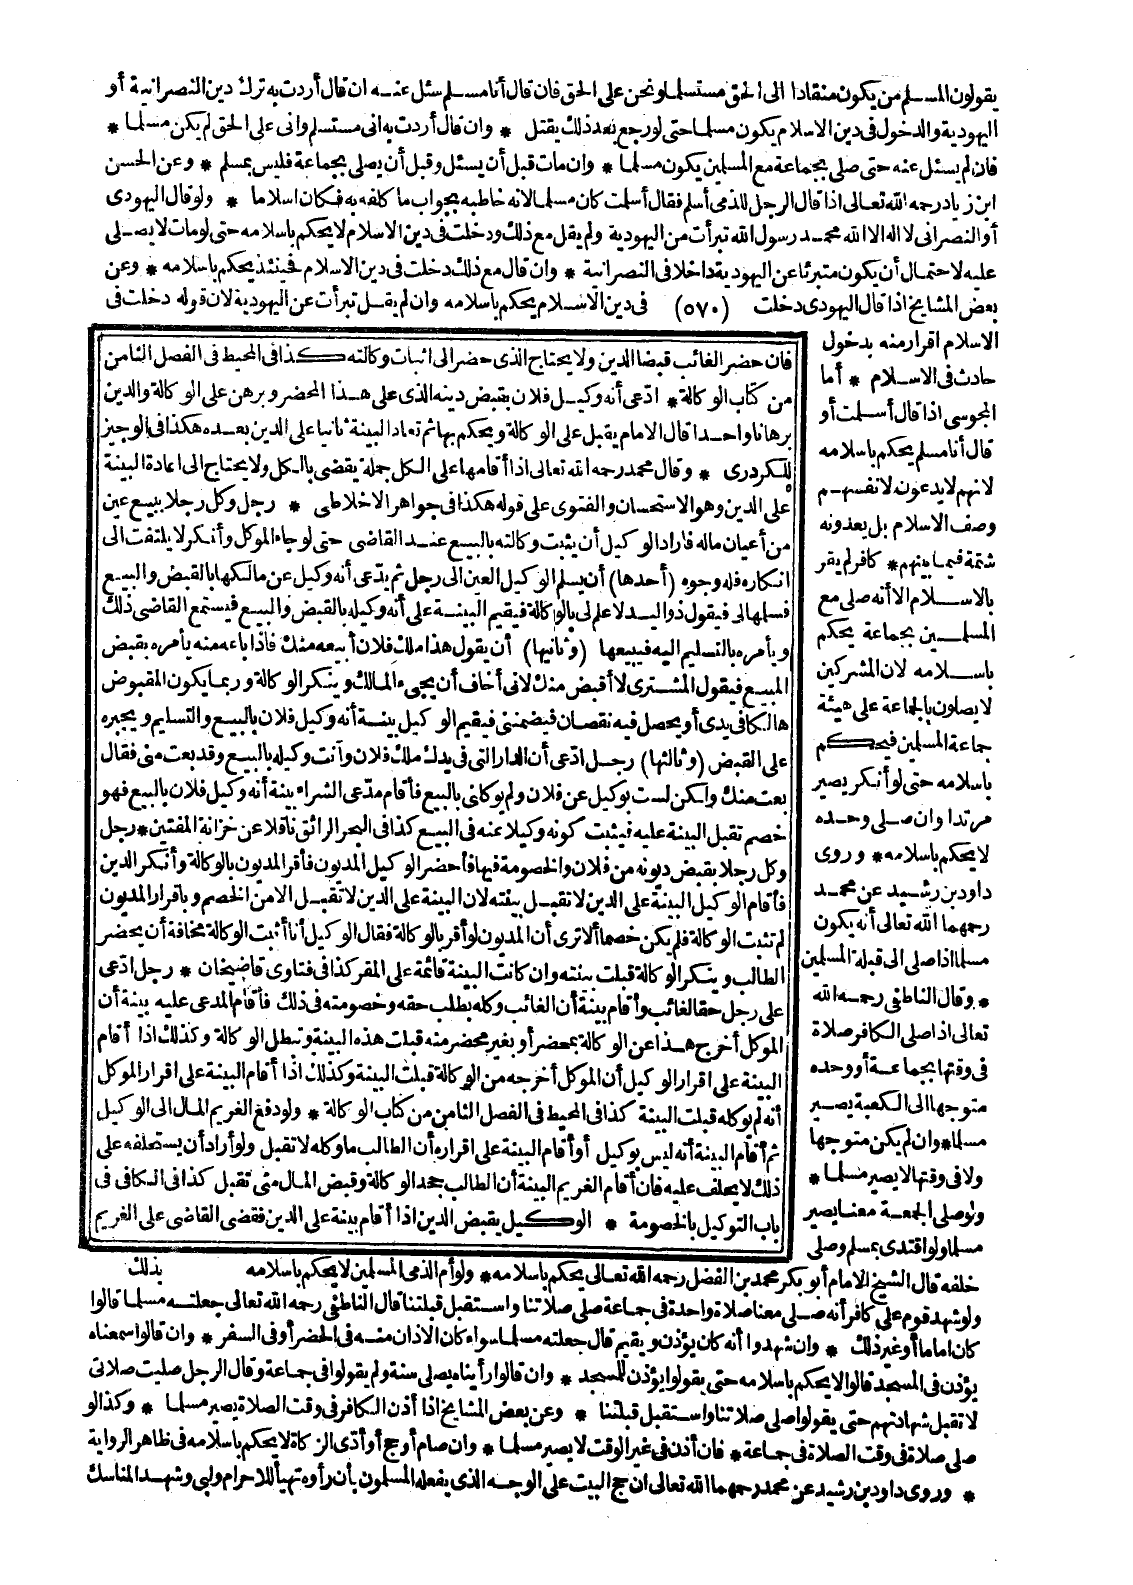 يقولون المسلم من يكون منقادا الى الحق مستسلما ونحن على الحق فان قال أنا مسلم سئل عنه ان قال أردت به ترك دين النصرانية أو
اليهودية والدخول فى دين الاسلام يكون مسلما حتى لو رجع بعد ذلك يقتل * وان قال أردت به انى مستسلم وانى على الحق لم يكن مسلما *
فان لم يسئل عنه حتى صلى بجماعة مع المسلمين يكون مسلما * وان مات قبل أن يسئل وقبل أن يصلى بجماعة فليس بمسلم * وعن الحسن
ابن زياد رحمه الله تعالى اذا قال الرجل للذمى أسلم فقال أسلمت كان مسلما لانه خاطبه بجواب ما كلفه به فكان اسلاما * ولو قال اليهودى
أو النصرانى لا اله الا الله محمد رسول الله تبرأت من اليهودية ولم يقل مع ذلك ودخلت فى دين الاسلام لا يحكم باسلامه حتى لو مات لا يصلى
عليه لاحتمال أن يكون متبرئا عن اليهودية داخلا فى النصرانية * وان قال مع ذلك دخلت فى دين الاسلام فحينئذ يحكم باسلامه * وعن
بعض المشايخ اذا قال اليهودى دخلت (٥٧٠) فى دين الاسلام يحكم باسلامه وان لم يقل تبرأت عن اليهودية لان قوله دخلت فى
الاسلام اقرار منه بدخول
حادث فى الاسلام * أما
المجوسى اذا قال أسلمت أو
قال أنا مسلم يحكم باسلامه
لانهم لا يدعون لانفسهم
وصف الاسلام بل يعدونه
شتمة فيما بينهم * كافر لم يقر
بالاسلام الا أنه صلى مع
المسلمين بجماعة يحكم
باسلامه لان المشركين
لا يصلون بالجماعة على هيئة
جماعة المسلمين فيحكم
باسلامه حتى لو أنكر يصير
مرتدا وان صلى وحده
لا يحكم باسلامه * وروى
داود بن رشيد عن محمد
رحمهما الله تعالى أنه يكون
مسلما اذا صلى الى قبلة المسلمين
* وقال الناطفى رحمه الله
تعالى اذا صلى الكافر صلاة
فى وقتها بجماعة أو وحده
متوجها الى الكعبة يصير
مسلما * وان لم يكن متوجها
ولا فى وقتها لا يصير مسلما *
ولو صلى الجمعة معنا يصير
مسلما ولو اقتدى بمسلم وصلى
خلفه قال الشيخ الامام أبو بكر محمد بن الفضل رحمه الله تعالى يحكم باسلامه * ولو أم الذمى المسلمين لا يحكم باسلامه
ولو شهد قوم على كافر أنه صلى معنا صلاة واحدة فى جماعة صلى صلاتنا واستقبل قبلتنا قال الناطفى رحمه الله تعالى جعلته مسلما قالوا
كان اماما أو غير ذلك * وان شهدوا أنه كان يؤذن ويقيم قال جعلته مسلما سواء كان الاذان منه فى الحضر أو فى السفر * وان قالوا سمعناه
يؤذن فى المسجد قالوا لا يحكم باسلامه حتى يقولوا يؤذن للمسجد * وان قالوا رأيناه يصلى سنة ولم يقولوا فى جماعة وقال الرجل صليت صلاتى
لا تقبل شهادتهم حتى يقولوا صلى صلاتنا واستقبل قبلتنا * وعن بعض المشايخ اذا أذن الكافر فى وقت الصلاة يصير مسلما * وكذا لو
صلى صلاة فى وقت الصلاة فى جماعة * فان أذن فى غير الوقت لا يصير مسلما * وان صام أو حج أو أدى الزكاة لا يحكم باسلامه فى ظاهر الرواية
* وروى داود بن رشيد عن محمد رحمهما الله تعالى ان حج البيت على الوجه الذى يفعله المسلمون بأن رأوه تهيأ للاحرام ولبى وشهد المناسك
فان حضر الغائب قبضا الدين ولا يحتاج الذى حضر الى اثبات وكالته كذا فى المحيط فى الفصل الثامن
من كتاب الوكالة * ادّعى أنه وكيل فلان بقبض دينه الذى على هذا المحضر وبرهن على الوكالة والدين
برهانا واحدا قال الامام يقبل على الوكالة ويحكم بها ثم تعاد البينة ثانيا على الدين بعده هكذا فى الوجيز
للكردرى * وقال محمد رحمه الله تعالى اذا أقامها على الكل جملة يقضى بالكل ولا يحتاج الى اعادة البينة
على الدين وهو الاستحسان والفتوى على قوله هكذا فى جواهر الاخلاطى * رجل وكل رجلا ببيع عين
من أعيان ماله فاراد الوكيل أن يثبت وكالته بالبيع عند القاضى حتى لو جاء الموكل وأنكر لا يلتفت الى
انكاره فله وجوه (أحدها) أن يسلم الوكيل العين الى رجل ثم يدّعى أنه وكيل عن مالكها بالقبض والبيع
فسلمها لى فيقول ذو اليد لا علم لى بالوكالة فيقيم البينة على أنه وكيله بالقبض والبيع فيستمع القاضى ذلك
ويأمره بالتسليم اليه فيبيعها (وثانيها) أن يقول هذا ملك فلان أبيعه منك فاذا باعه منه يأمره بقبض
المبيع فيقول المشترى لا أقبض منك لانى أخاف أن يجىء المالك وينكر الوكالة وربما يكون المقبوض
هالكا فى يدى أو يحصل فيه نقصان فيضمننى فيقيم الوكيل بينة أنه وكيل فلان بالبيع والتسليم ويجبره
على القبض (وثالثها) رجل ادّعى أن الدار التى فى يدك ملك فلان وأنت وكيله بالبيع وقد بعت منى فقال
بعت منك ولكن لست بوكيل عن فلان ولم يوكلنى بالبيع فأقام مدّعى الشراء بينة أنه وكيل فلان بالبيع فهو
خصم تقبل البينة عليه فيثبت كونه وكيلا عنه فى البيع كذا فى البحر الرائق ناقلا عن خزانة المفتين * رجل
وكل رجلا بقبض ديونه من فلان والخصومة فيها فأحضر الوكيل المديون فأقر المديون بالوكالة وأنكر الدين
فأقام الوكيل البينة على الدين لا تقبل بينته لان البينة على الدين لا تقبل الا من الخصم وباقرار المديون
لم تثبت الوكالة فلم يكن خصما ألا ترى أن المديون لو أقر بالوكالة فقال الوكيل أنا أثبت الوكالة مخافة أن يحضر
الطالب وينكر الوكالة قبلت بينته وان كانت البينة قائمة على المقر كذا فى فتاوى قاضيخان * رجل ادّعى
على رجل حقا لغائب وأقام بينة أن الغائب وكله بطلب حقه وخصومته فى ذلك فأقام المدعى عليه بينة أن
الموكل أخرج هذا عن الوكالة بمحضر أو بغير محضر منه قبلت هذه البينة وتبطل الوكالة وكذلك اذا أقام
البينة على اقرار الوكيل أن الموكل أخرجه من الوكالة قبلت البينة وكذلك اذا أقام البينة على اقرار الموكل
أنه لم يوكله قبلت البينة كذا فى المحيط فى الفصل الثامن من كتاب الوكالة * ولو دفع الغريم المال الى الوكيل
ثم أقام البينة أنه ليس بوكيل أو أقام البينة على اقراره أن الطالب ما وكله لا تقبل ولو أراد أن يستحلفه على
ذلك لا يحلف عليه فان أقام الغريم البينة أن الطالب جحد الوكالة وقبض المال منى تقبل كذا فى الكافى فى
باب التوكيل بالخصومة * الوكيل بقبض الدين اذا أقام بينة على الدين فقضى القاضى على الغريم
بذلك